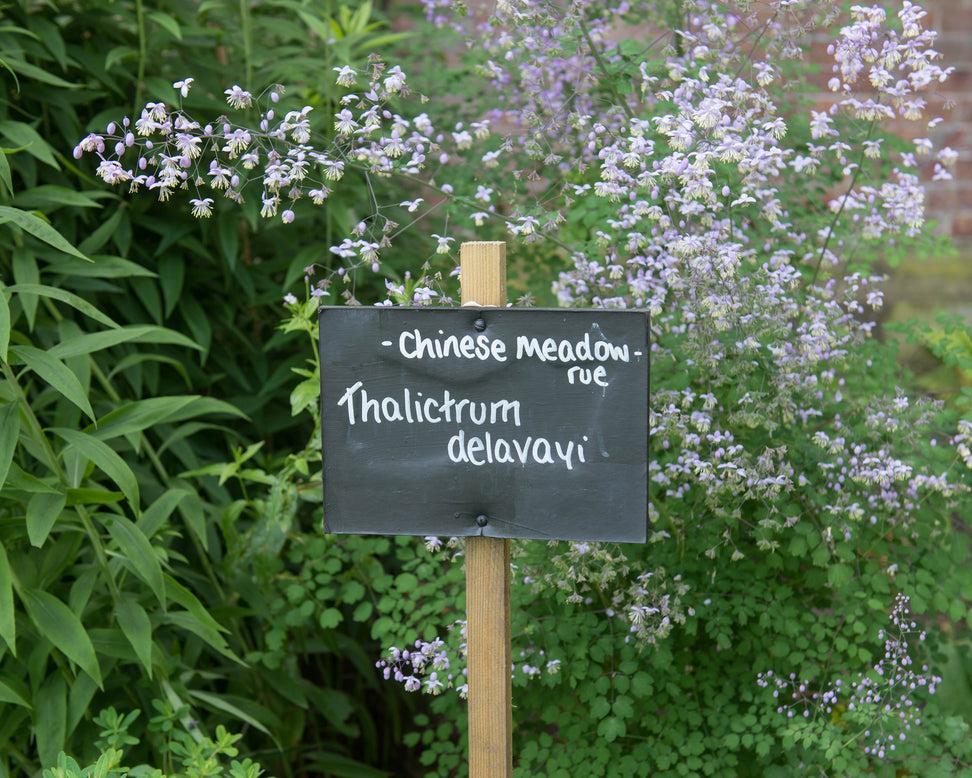 - Chinese Meadow -
rue
Thalictrum
delavayi